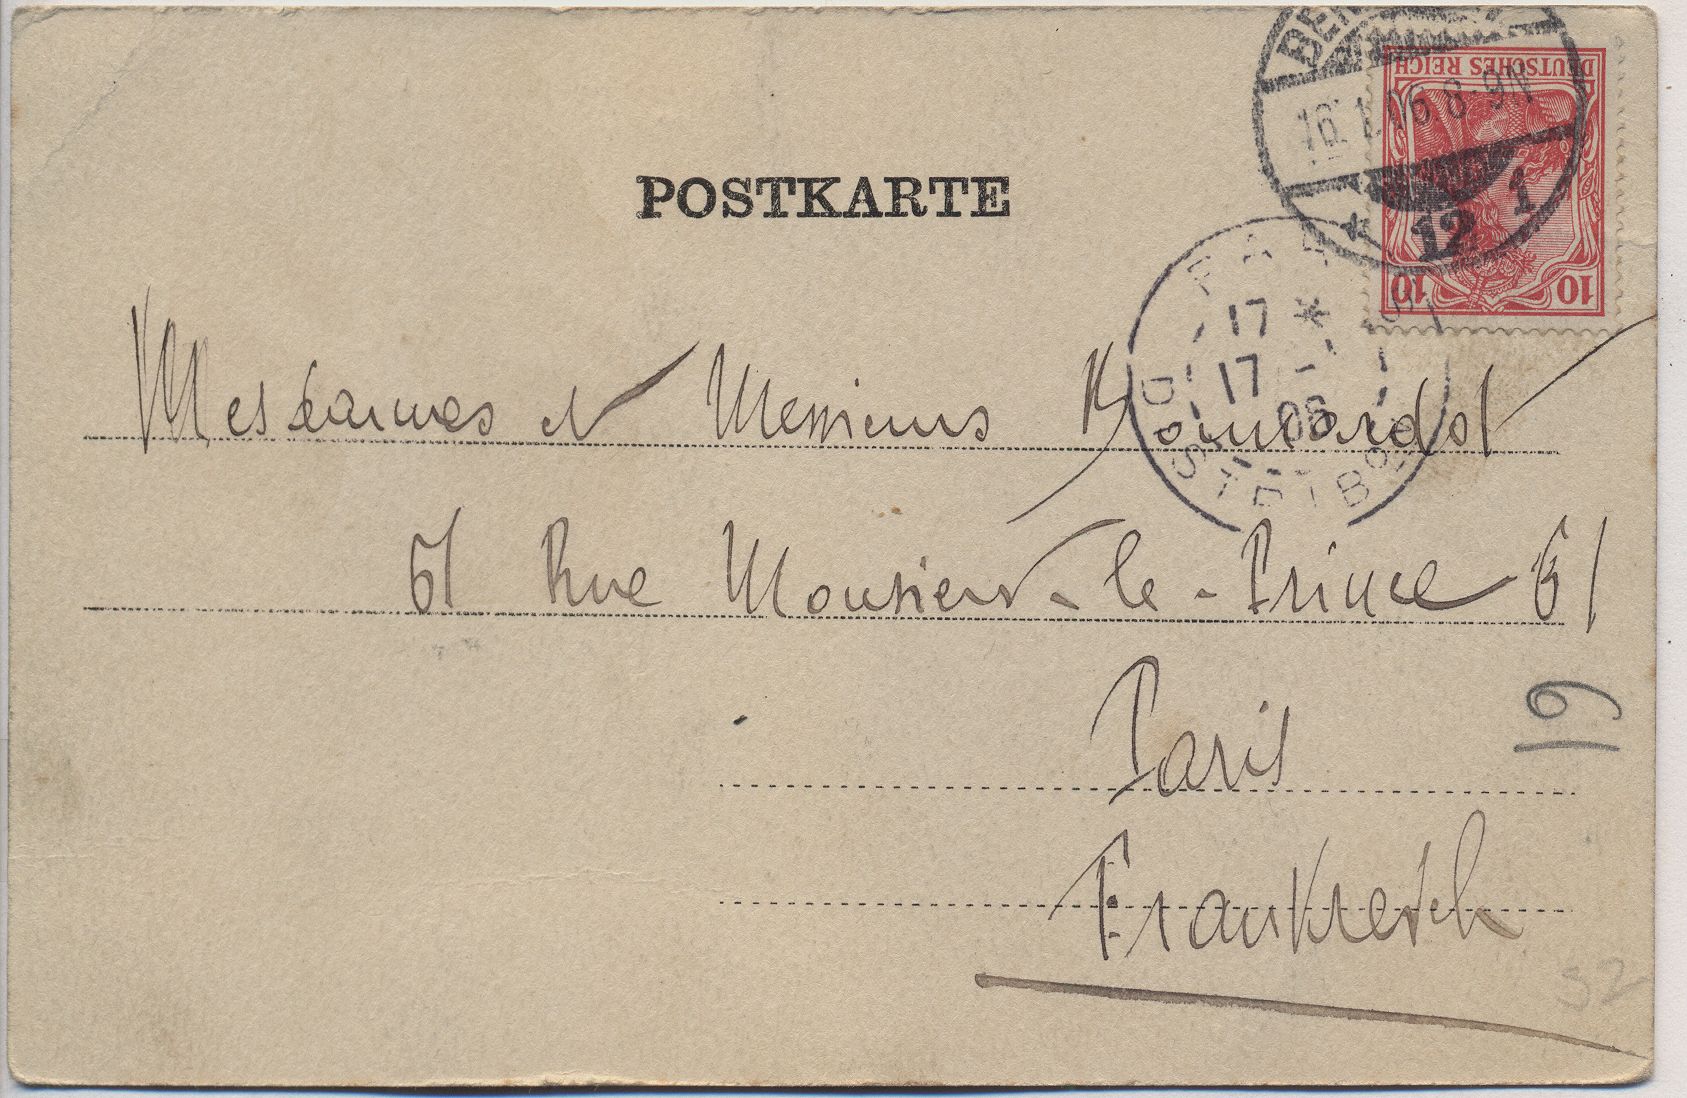 POSTKARTE
DEUTSCHES REICH
10 10
BER
16.1.06.8-9N
* 12 1
17 *
17 - 1
06
DISTRIBON
Mesdames et Messieurs
61 Rue Monsieur-le-Prince 61
Paris
Frankreich
19
52